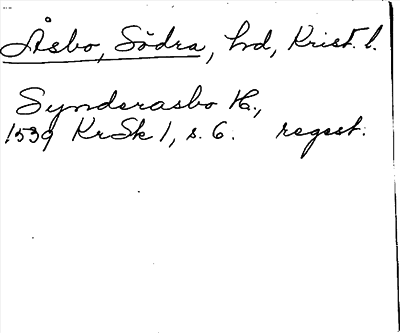 Åsbo, Södra, hd, Krist. l.
Synderasbo H.,
1539 KrSk 1, s. 6. regest.